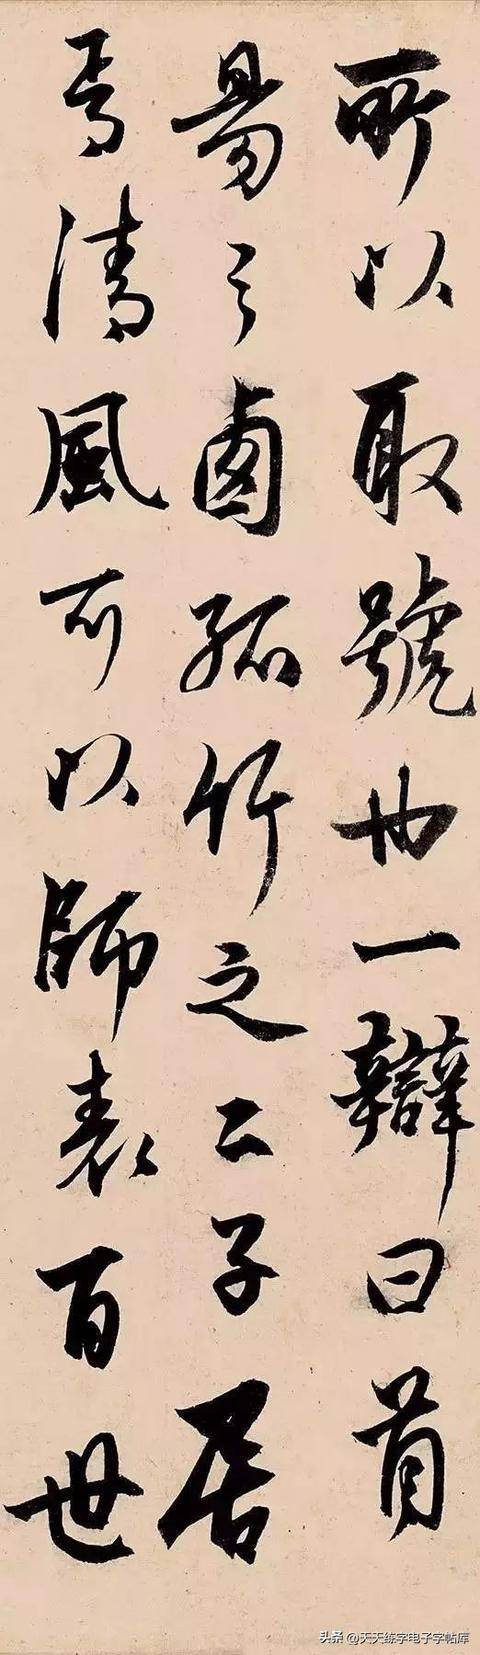 所以取號也一辯曰首
昜之鹵孤竹之二子居
焉清風可以師表百世
头条@天天练字电子字帖库